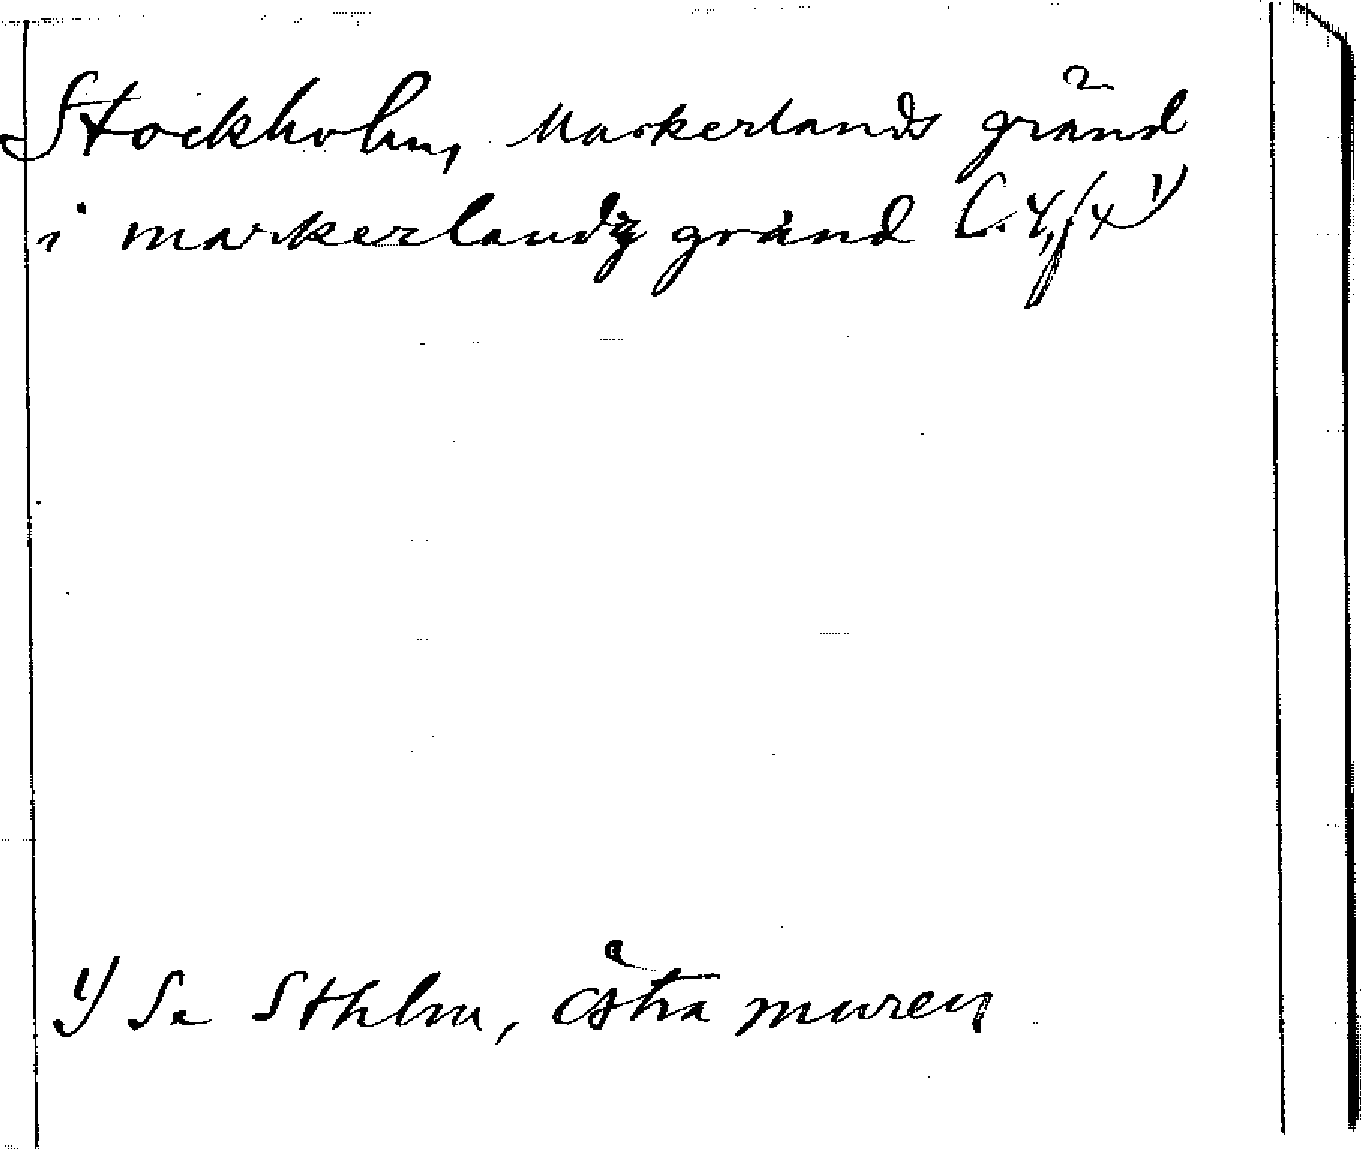 Stockholm, Markerlands gränd
i markerlandz gränd
1) Se Sthlm, östra muren